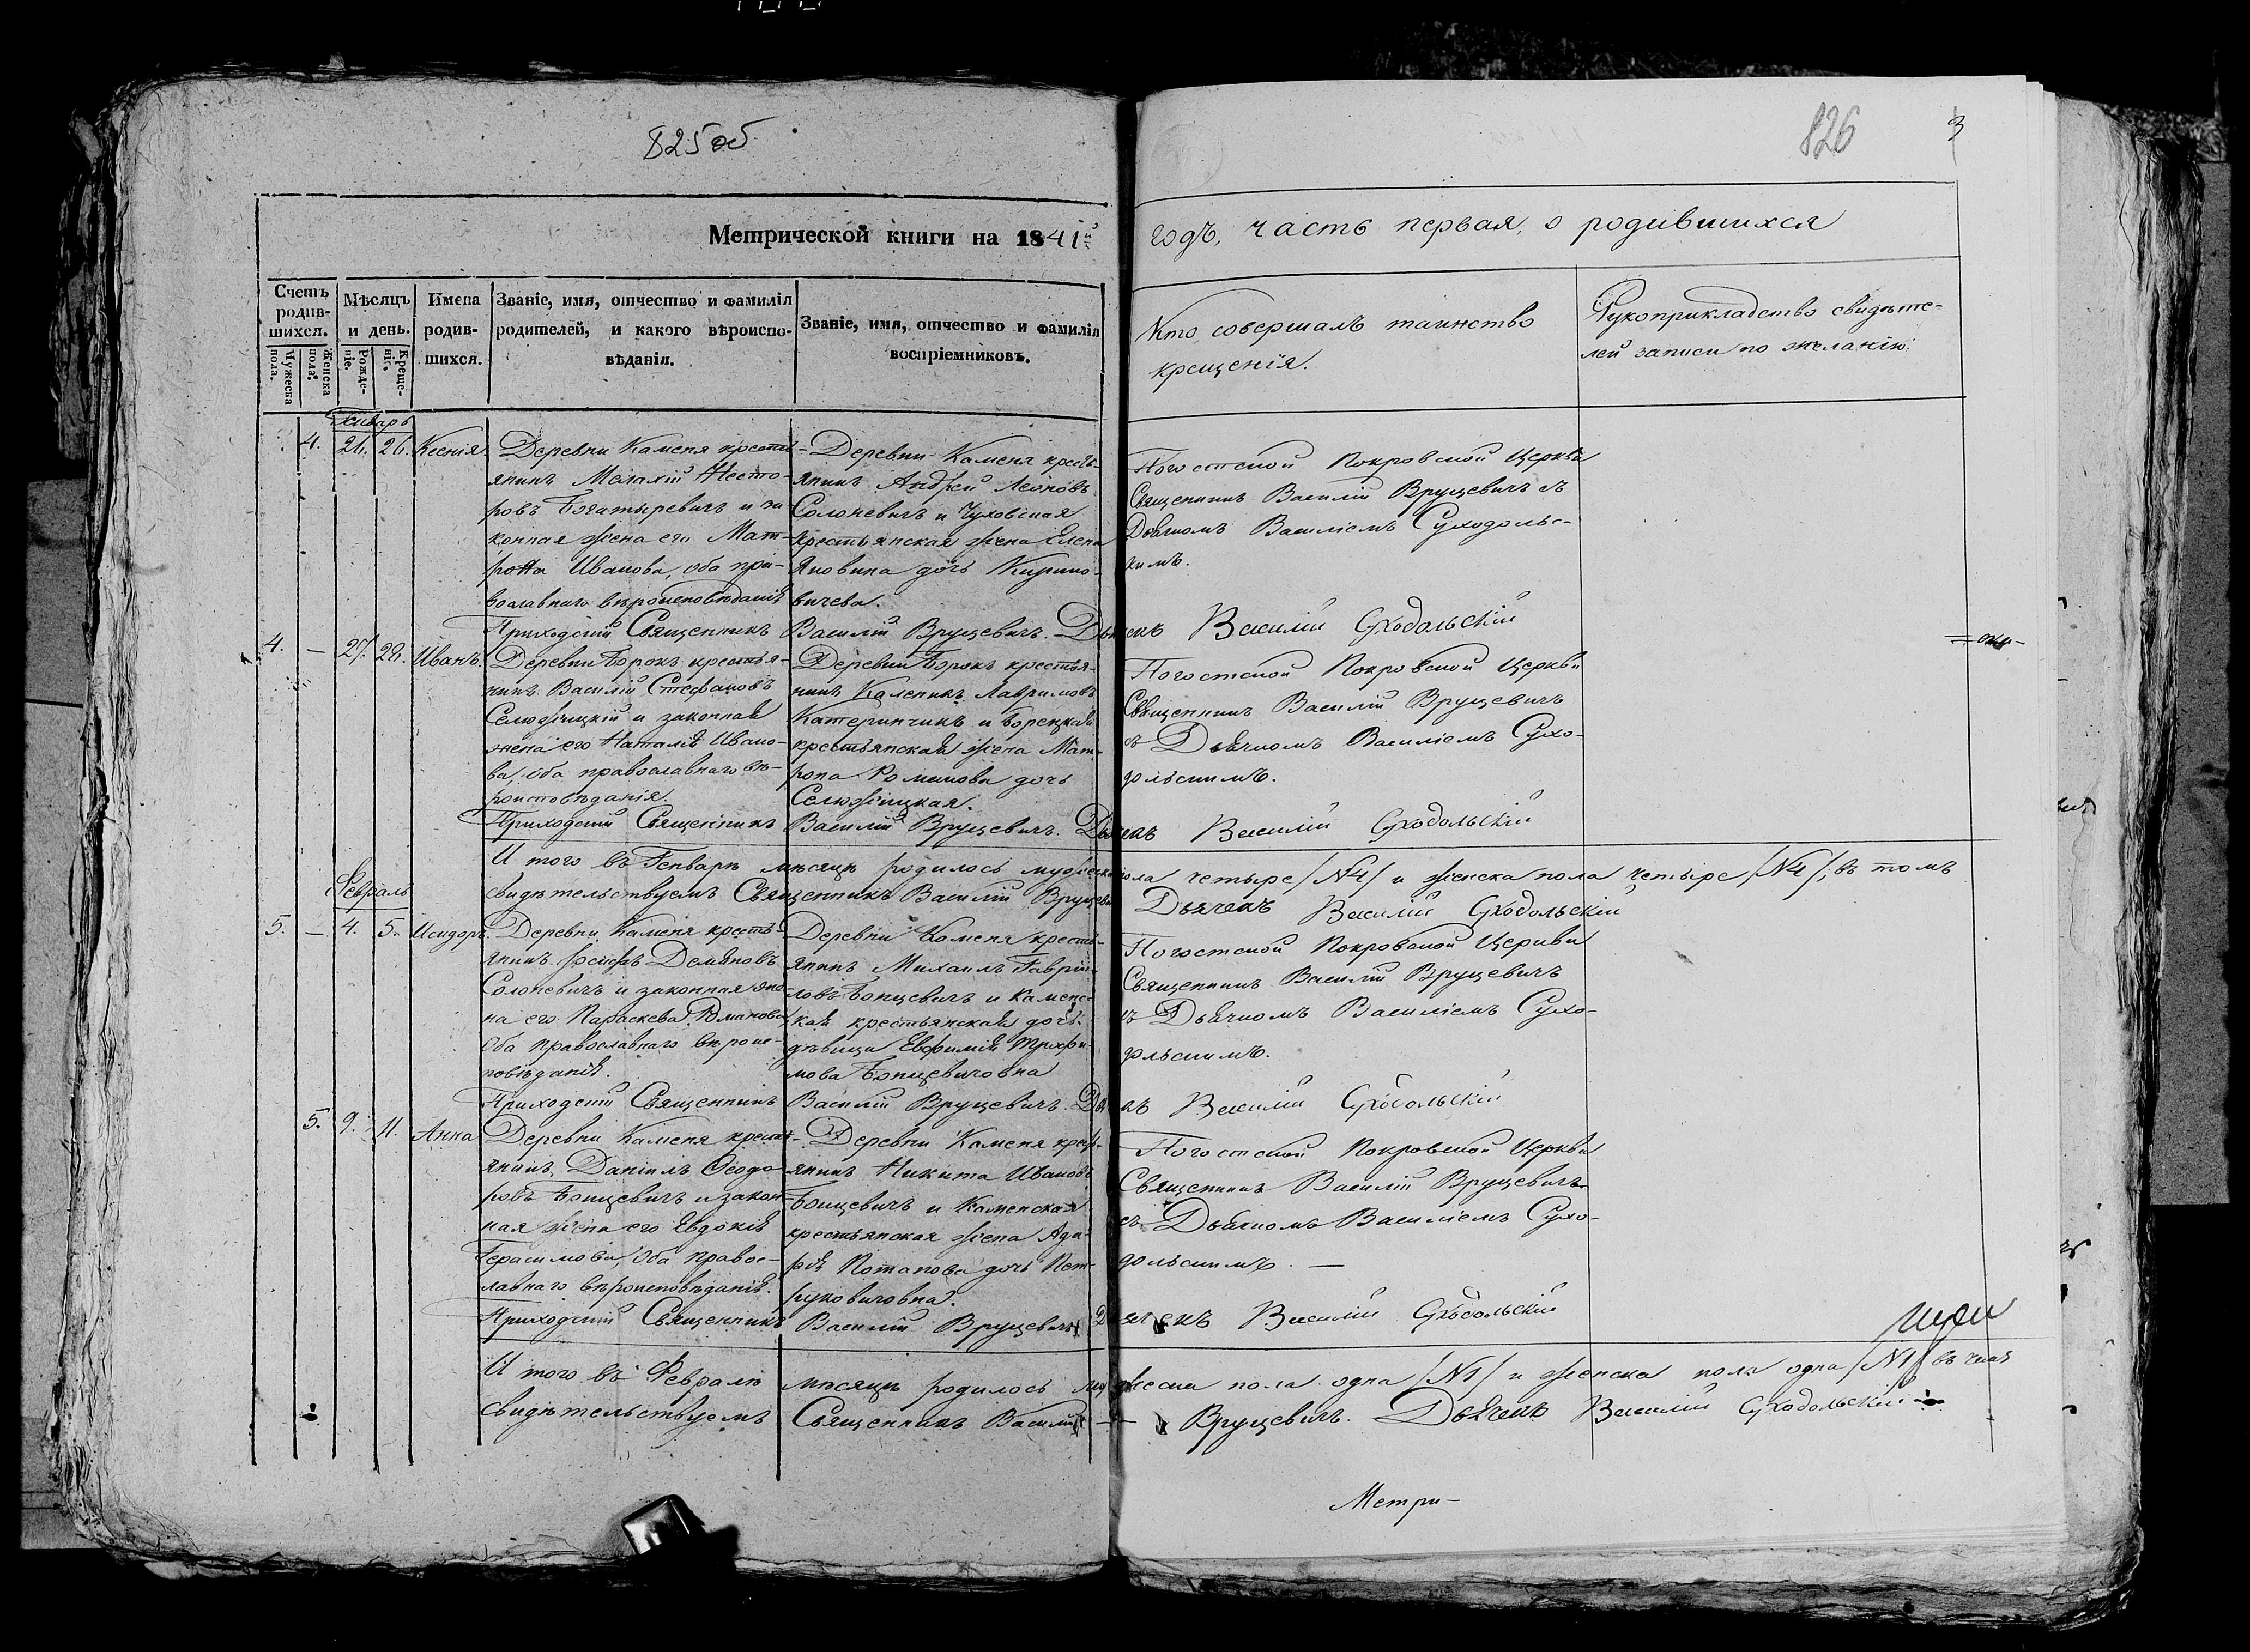 825 об
826
3
Метрической книги на 1841й
годъ, часть первая, о родившихся
Счетъ родившихся.
Мужеска пола.
Женска пола.
Мѣсяцъ и день.
Рожденіе.
Крещеніе.
Имена родившихся.
Званіе, имя, отчество и фамилія
родителей, и какого вѣроиспо-
вѣданія.
Званіе, имя, отчество и фамилія
воспріемниковъ.
Кто совершалъ таинство
крещенія.
Рукоприкладство свидѣте-
лей записи по желанію.
Генварь
4. 26. 26. Ксенія.
Деревни Каменя кресть-
янинъ Малахій Несто-
ровъ Богатыревичъ и за
конная жена его Мат-
рона Иванова, оба пра-
вославнаго вѣроисповѣданія
Деревни Каменя кресть-
янинъ Андрей Леоновъ
Солоневичъ и Чуховская
крестьянская жена Елена
Яковина дочь Кирило-
вичева.
Погостской Покровской Церкви
Священникъ Василій Вруцевичъ съ
Дьячкомъ Василіемъ Суходольс-
кимъ.
Приходскій Священникъ Василій Вруцевичъ. Дьячекъ Василій Суходольскій
4. — 27. 28. Иванъ.
Деревни Борокъ крестья-
нинъ Василій Стефановъ
Селюжицкій и законная
жена его Наталія Ивано-
ва, оба православнаго вѣ-
роисповѣданія.
Деревни Борокъ крестья-
нинъ Каленикъ Лавриновъ
Катеринчикъ и Борецкая
крестьянская жена Мат-
рона Романова дочь
Селюжицкая.
Погостской Покровской Церкви
Священникъ Василій Вруцевичъ
съ Дьячкомъ Василіемъ Сухо-
дольскимъ.
Приходскій Священникъ Василій Вруцевичъ. Дьячекъ Василій Суходольскій
И того въ Генварѣ мѣсяцѣ родилось мужеска пола четыре /№4/ и женска пола четыре /№4/; въ томъ
свидѣтельствуемъ Священникъ Василій Вруцевичъ Дьячекъ Василій Суходольскій
Февраль
5. — 4. 5. Исидоръ.
Деревни Каменя кресть-
янинъ Іосифъ Демяновъ
Солоневичъ и законная же-
на его Параскева Романова
Оба православнаго вѣроис-
повѣданія.
Деревни Каменя кресть-
янинъ Михаилъ Гаврии-
ловъ Бонцевичъ и Каменс-
кая крестьянская дочь
дѣвица Евфимія Трофи-
мова Бонцевичовна
Погостской Покровской Церкви
Священникъ Василій Вруцевичъ
съ Дьячкомъ Василіемъ Сухо-
дольскимъ.
Приходскій Священникъ Василій Вруцевичъ. Дьячекъ Василій Суходольскій
5. 9. 11. Анна
Деревни Каменя кресть-
янинъ Даніилъ Ѳеодо-
ровъ Бонцевичъ и закон-
ная жена его Евдокія
Герасимова, Оба правос-
лавнаго вѣроисповѣданія.
Деревни Каменя кресть-
янинъ Никита Ивановъ
Бонцевичъ и Каменская
крестьянская жена Ага-
фія Потапова дочь Пет-
руковичовна.
Погостской Покровской Церкви
Священникъ Василій Вруцевичъ
съ Дьячкомъ Василіемъ Сухо-
дольскимъ. —
Приходскій Священникъ Василій Вруцевичъ Дьячекъ Василій Суходольскій
И того въ Февралѣ мѣсяцѣ родилось мужеска пола одна /№1/ и женска пола одна /№1/ въ чемъ
свидѣтельствуемъ Священникъ Василій Вруцевичъ. Дьячекъ Василій Суходольскій
Метри-